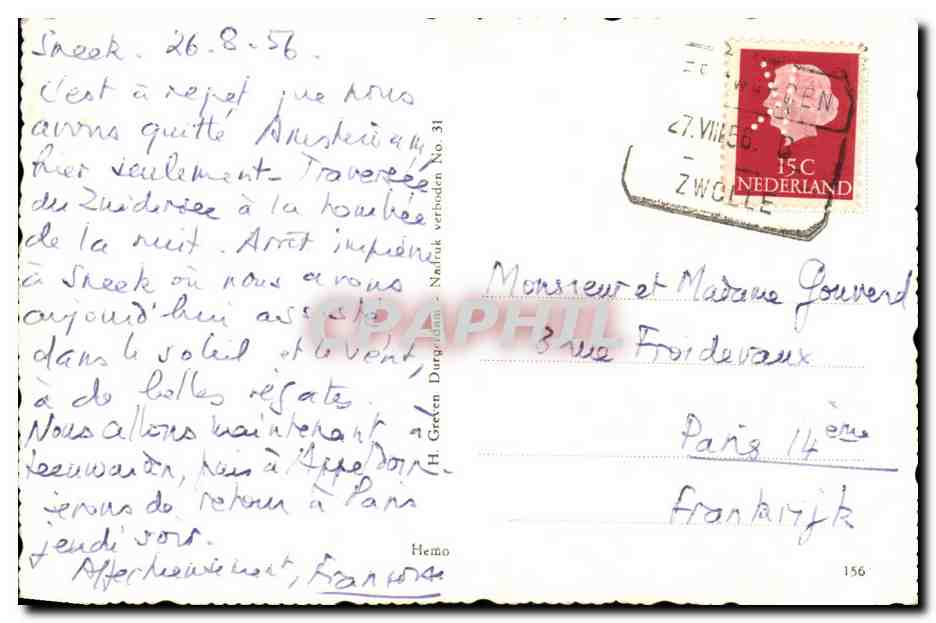 Sneek. 26-8-56.
C'est à regret que nous
avons quitté Amsterdam
hier seulement - Traversée
du Zuidersee à la tombée
de la nuit. Arrêt
à Sneek où nous avons
aujourd'hui assisté,
dans le soleil et le vent,
à de belles régates.
Nous allons maintenant à
Leeuwarden, puis à Appeldorn -
serons de retour à Paris
jendi soir.
Affectueusement, Françoise
H. Greven Durgerdam - Nadruk verboden No. 31
Hemo
27.VIII.56.
ZWOLLE
15 C
NEDERLAND
Monsieur et Madame Gouverd
3 rue Froidevaux
Paris 14ème
Frankrijk
156
CPAPHIL